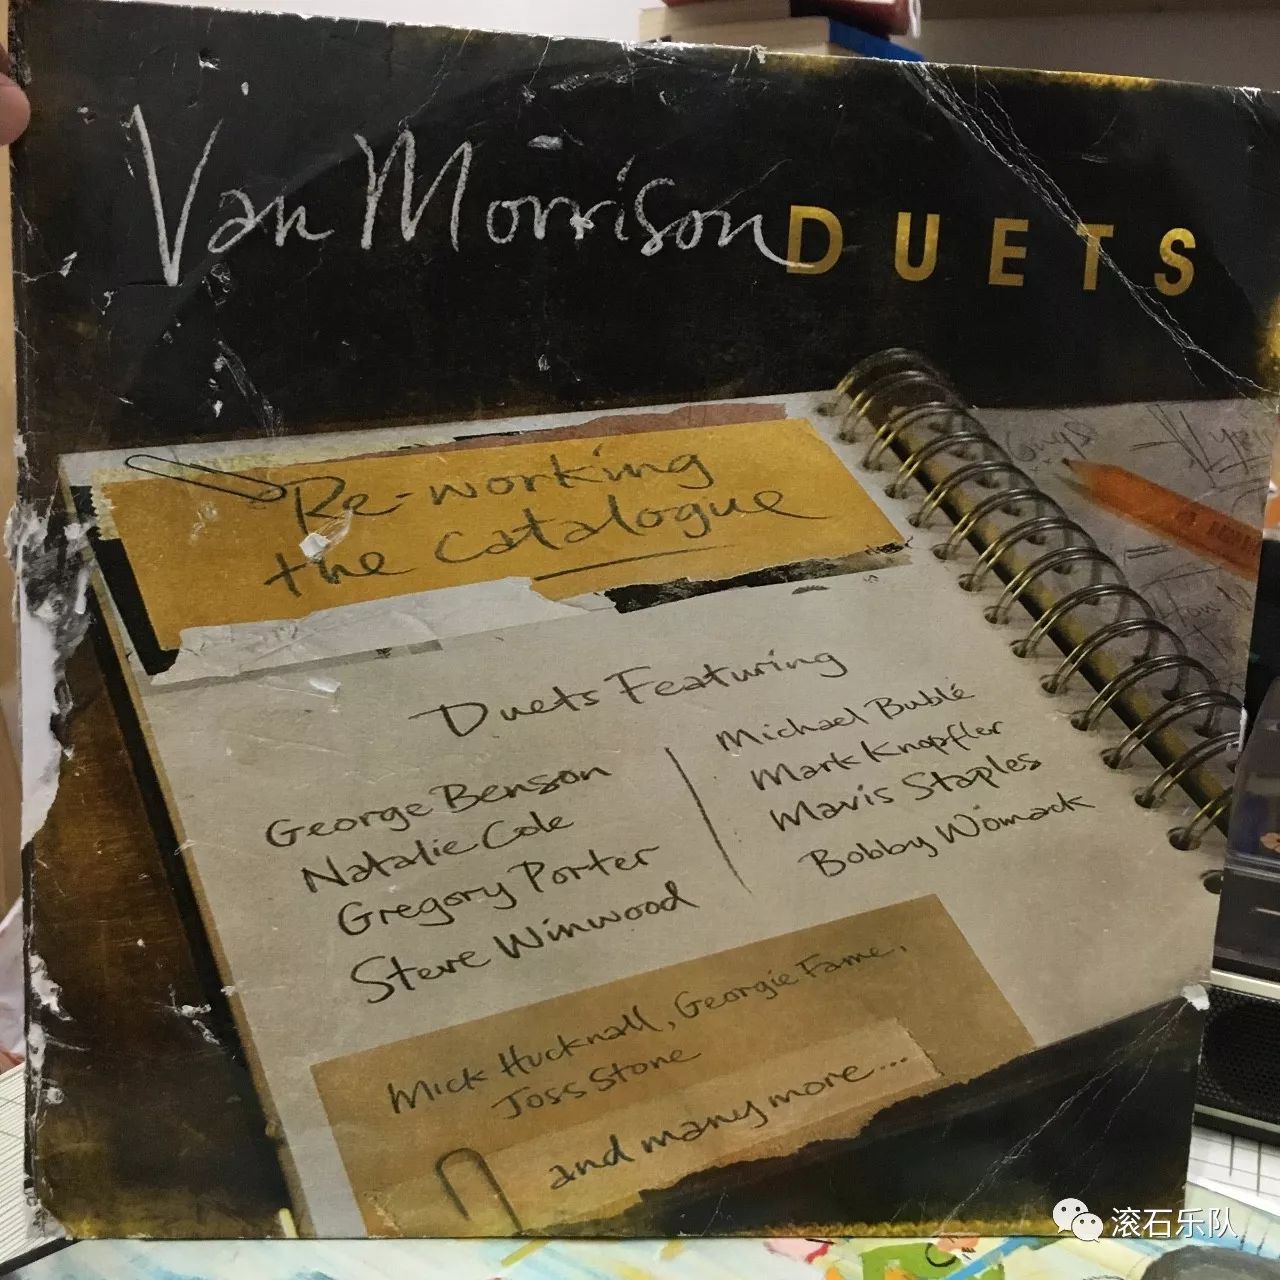 Van Morrison DUETS
Re-working
the catalogue
Duets Featuring
George Benson
Natalie Cole
Gregory Porter
Steve Winwood
Michael Bublé
Mark Knopfler
Mavis Staples
Bobby Womack
Mick Hucknall, Georgie Fame,
Joss Stone
and many more...
滚石乐队